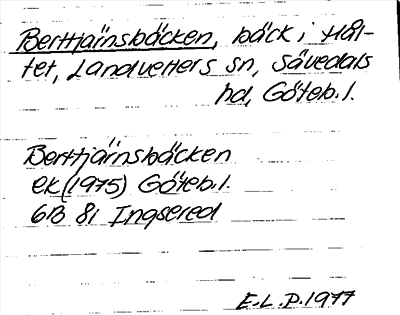 Berttjärnsbäcken, bäck i Hål-
tet, Landvetters sn, Sävedals
hd, Göteb. l.
Berttjärnsbäcken
ek (1975) Göteb. l.
6B 8i Ingsered
E.L.P. 1977